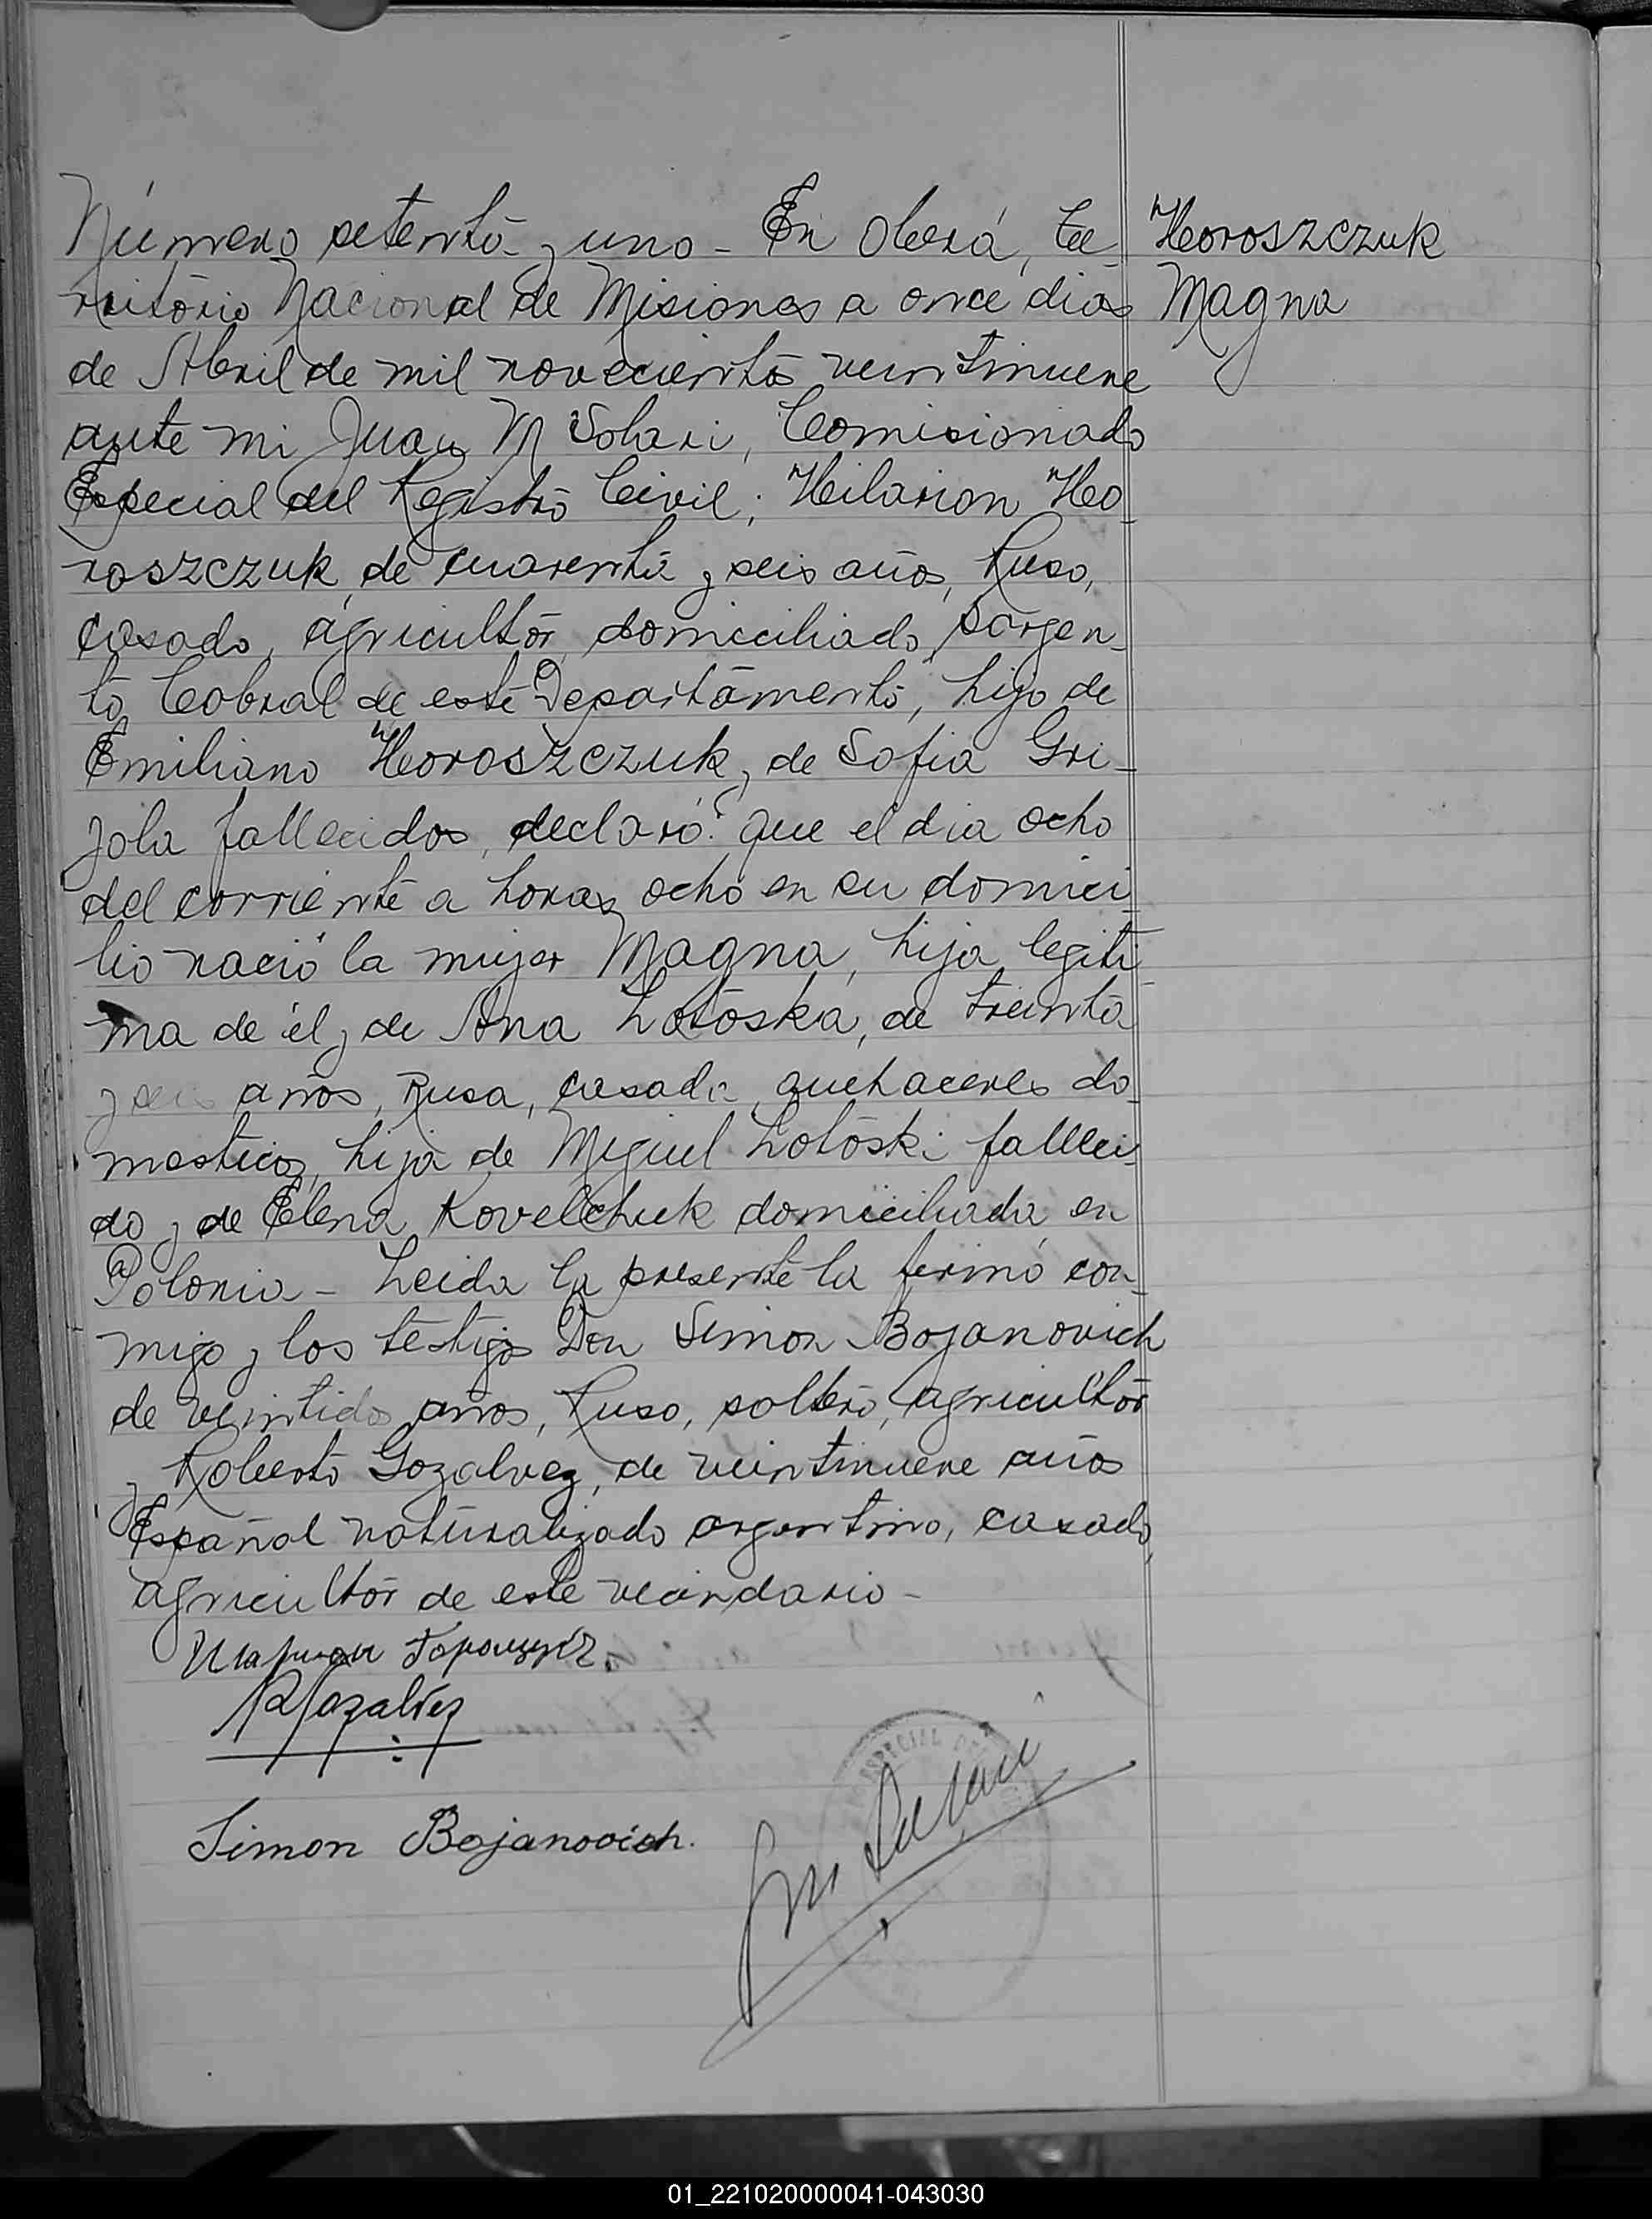 Número setenta y uno - En Oberá, Te-
rritorio Nacional de Misiones a once dias
de Abril de mil novecientos veintinueve
ante mi Juan M Solari, Comisionado
Especial del Registro Civil; Hilarion Ho-
roszczuk, de cuarenta y seis años, Ruso,
casado, agricultor, domiciliado, Sargen-
to Cabral de este Departamento, hijo de
Emiliano Horoszczuk y de Sofia Gri-
jola fallecidos, declaró: que el dia ocho
del corriente a horas ocho en su domici-
lio nació la mujer Magna, hija legiti-
ma de él y de Ana Lotoska, de treinta
y seis años, Rusa, casada, quehaceres do-
mesticos, hija de Miguel Lotoski falleci-
do y de Elena Kovelchuk domiciliada en
Polonia - Leida la presente la firmó con-
migo y los testigos Don Simon Bojanovich
de veintidos años, Ruso, soltero, agricultor
y Roberto Gozalvez, de veintinueve años
Español naturalizado argentino, casado,
agricultor de este vecindario -
Horoszczuk
Magna
RGozalvez
Simon Bojanovich.
ESPECIAL DEL
01_221020000041-043030